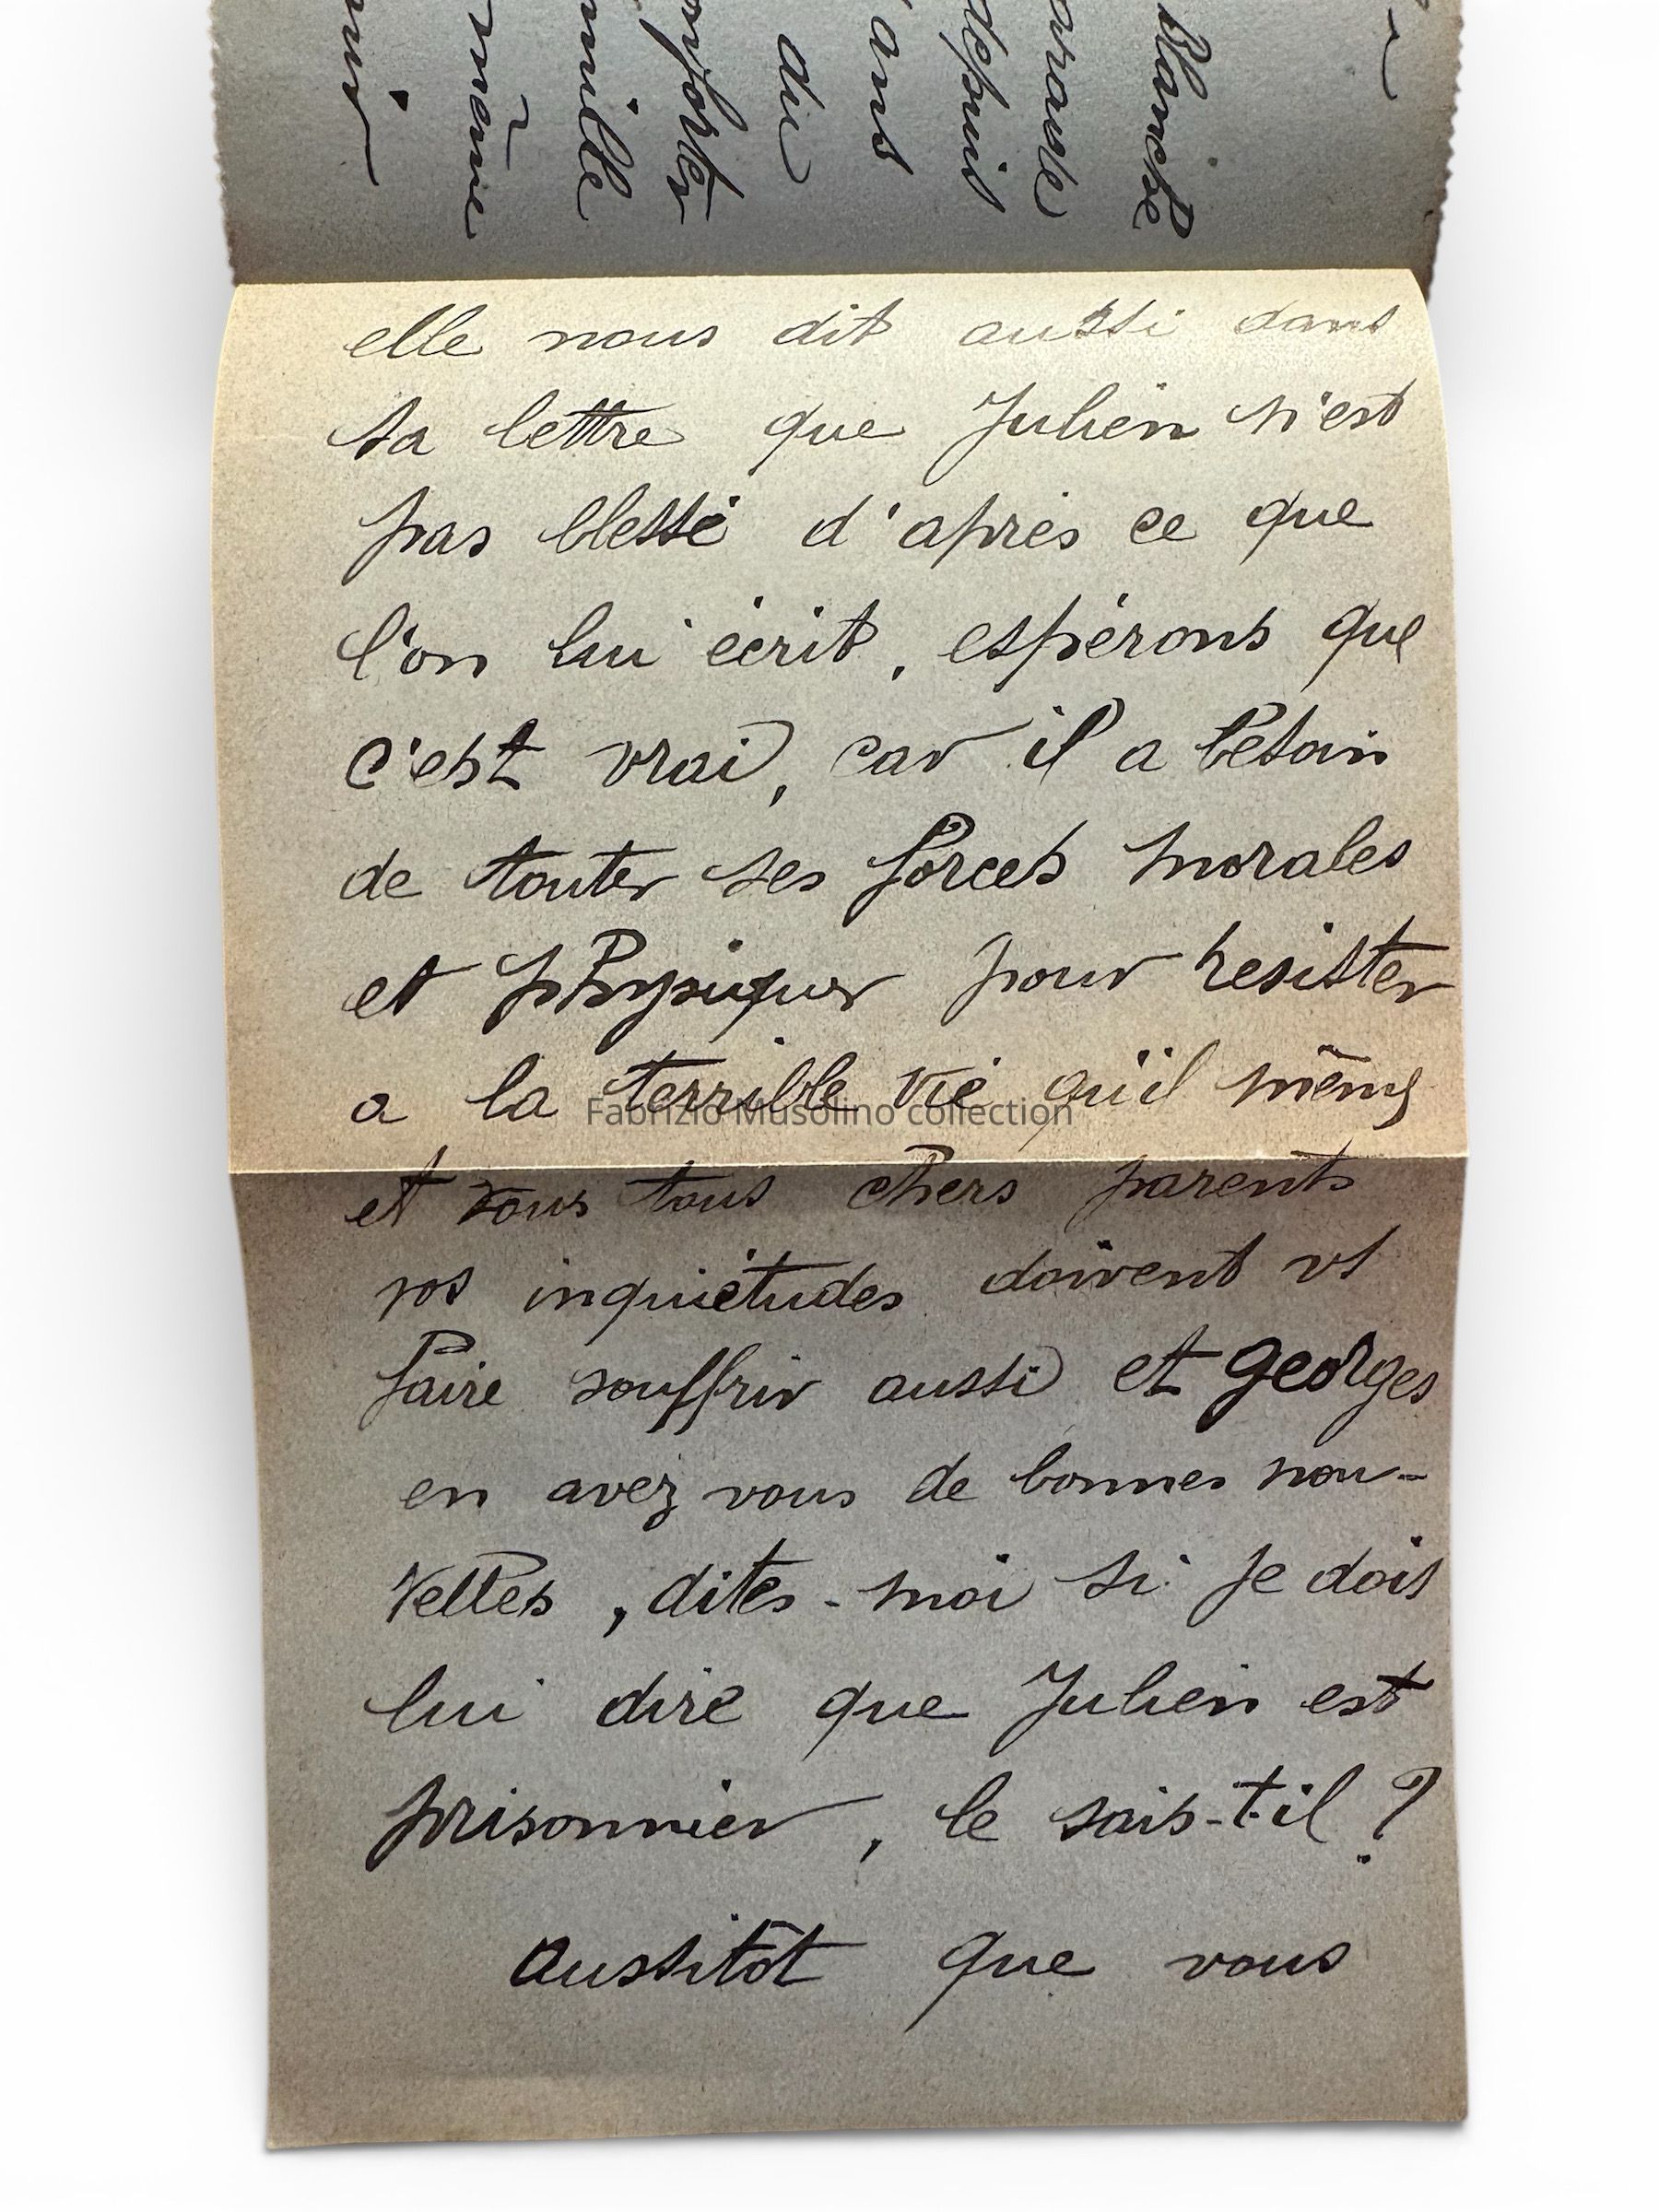 Blanche
depuis
ans
du
mille
même
elle nous dit aussi dans
sa lettre que Julien n'est
pas blessé d'après ce que
l'on lui écrit, espérons que
c'est vrai, car il a besoin
de toutes ses forces morales
et physiques pour resister
a la terrible vie qu'il mène
et vous tous chers parents
vos inquiétudes doivent vs
faire souffrir aussi et Georges
en avez vous de bonnes nou-
velles, dites-moi si je dois
lui dire que Julien est
prisonnier, le sais-t-il ?
Aussitôt que vous
Fabrizio Musolino collection